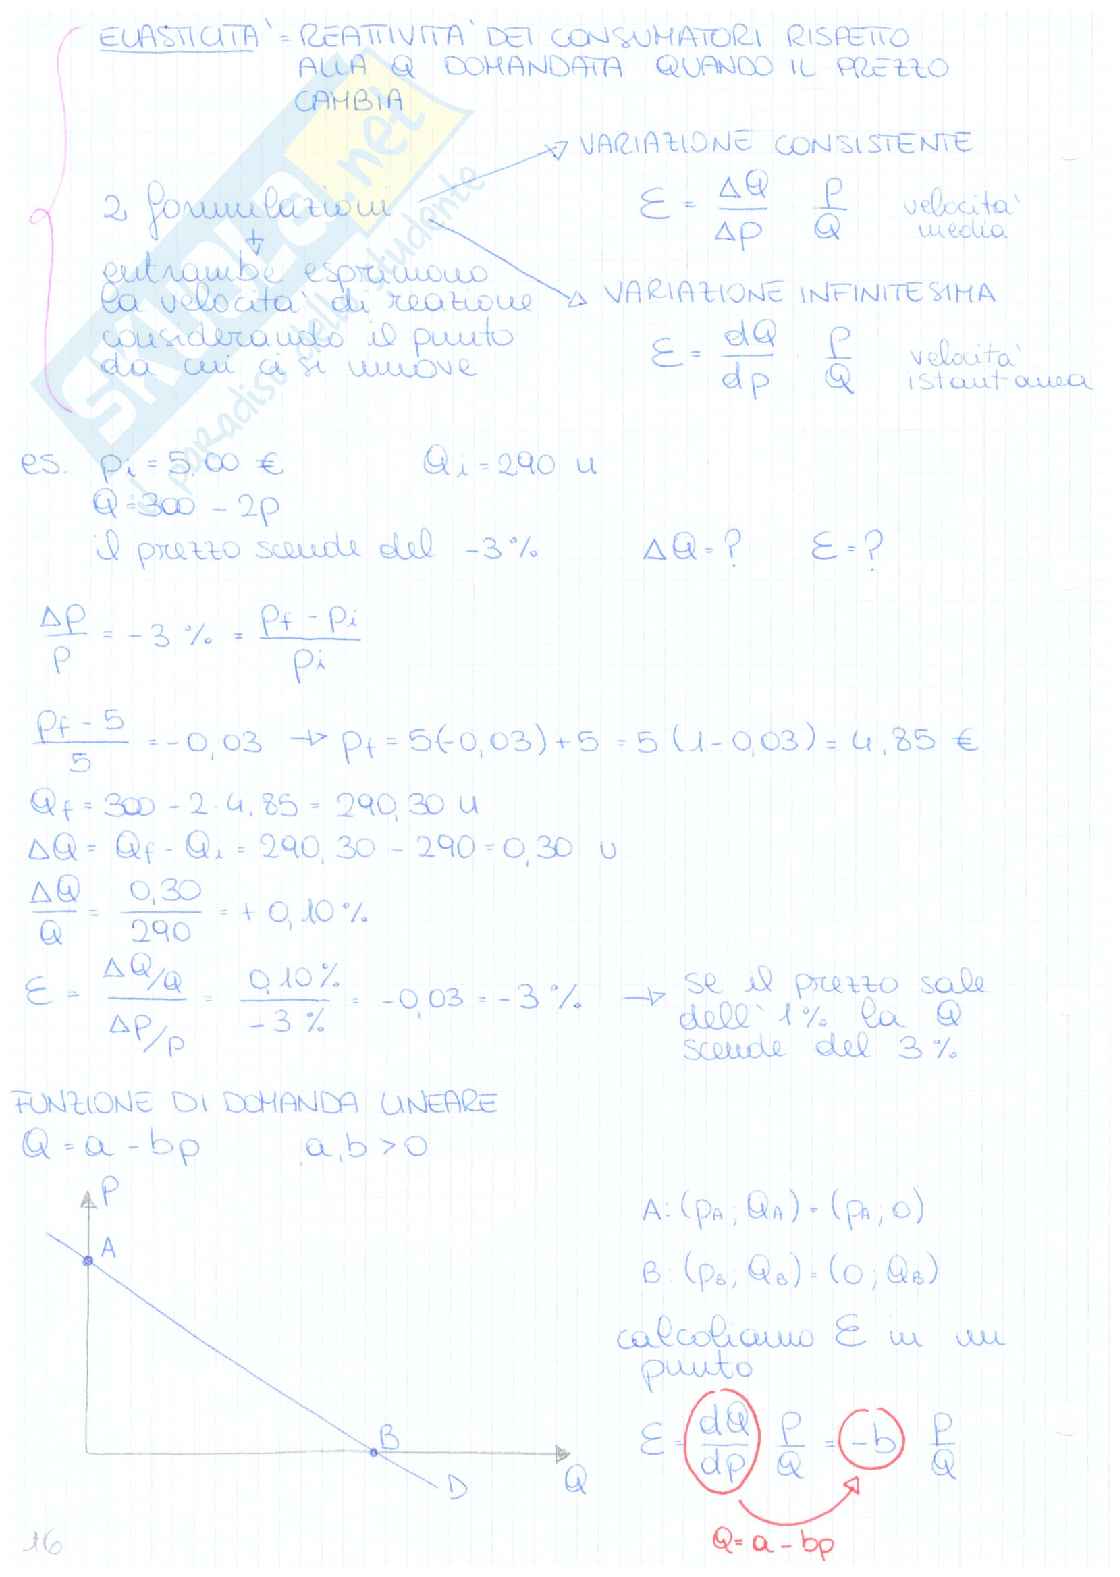 ELASTICITA' = REATTIVITA' DEI CONSUMATORI RISPETTO
ALLA Q DOMANDATA QUANDO IL PREZZO
CAMBIA
VARIAZIONE CONSISTENTE
2 formulazioni
ε = ΔQ/Δp P/Q velocità media
entrambe esprimono
la velocità di reazione
considerando il punto
da cui ci si muove
VARIAZIONE INFINITESIMA
ε = dQ/dp P/Q velocità istantanea
SKUOLA.net
il paradiso dello studente
es. pi = 5,00 € Qi = 290 u
Q = 300 - 2p
il prezzo scende del -3% ΔQ = ? ε = ?
ΔP/P = -3% = (Pf - Pi)/Pi
(Pf - 5)/5 = -0,03 → Pf = 5(-0,03)+5 = 5(1-0,03) = 4,85 €
Qf = 300 - 2·4,85 = 290,30 u
ΔQ = Qf - Qi = 290,30 - 290 = 0,30 u
ΔQ/Q = 0,30/290 = + 0,10%
ε = (ΔQ/Q)/(ΔP/P) = 0,10%/-3% = -0,03 = -3% → se il prezzo sale
dell'1% la Q
scende del 3%
FUNZIONE DI DOMANDA LINEARE
Q = a - bp a,b > 0
P
A
B
D
Q
A: (PA; QA) = (PA; 0)
B: (PB; QB) = (0; QB)
calcoliamo ε in un
punto
ε = dQ/dp P/Q = -b P/Q
Q = a - bp
16